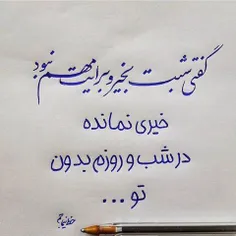 گفتی شبت بخیر و برایت مهم نبود
خیری نمانده
در شب و روزم بدون
تو ...